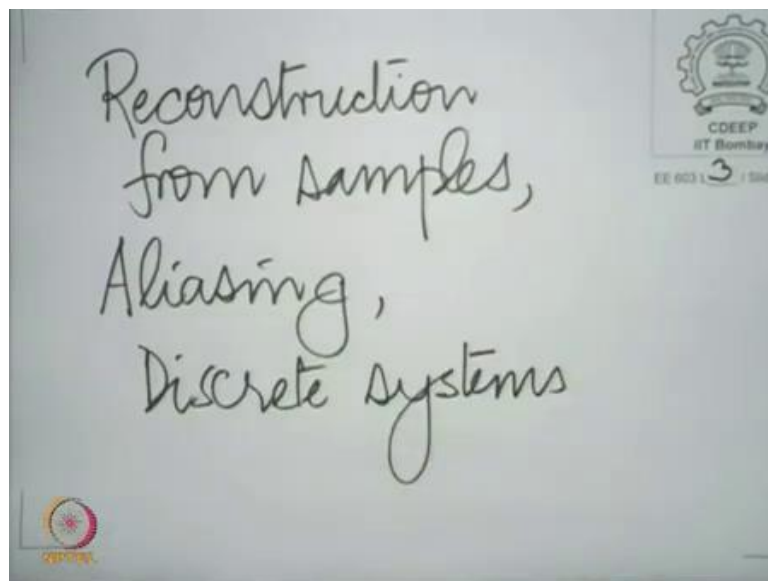 Reconstruction
from samples,
Aliasing,
Discrete systems
CDEEP
IIT Bombay
EE 603 L 3 / Slid
NPTEL